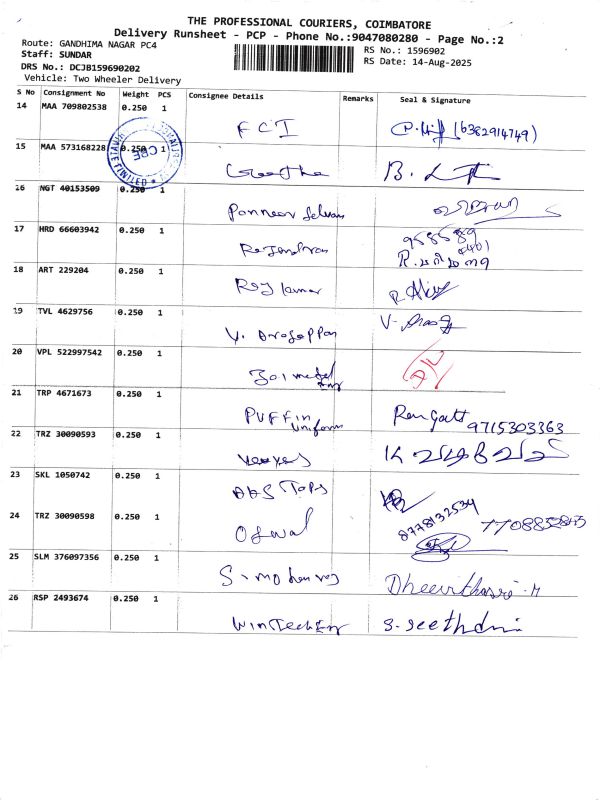 THE PROFESSIONAL COURIERS, COIMBATORE
Delivery Runsheet - PCP - Phone No.:9047080280 - Page No.:2
Route: GANDHIMA NAGAR PC4
RS No.: 1596902
Staff: SUNDAR
RS Date: 14-Aug-2025
DRS No.: DCJB159690202
Vehicle: Two Wheeler Delivery
S No Consignment No Weight PCS Consignee Details Remarks Seal & Signature
14 MAA 709802538 0.250 1 FCI (6382914749)
15 MAA 573168228 0.250 1 Geetha B.
16 NGT 40153509 0.250 1 Panneer Selvam
17 HRD 66603942 0.250 1 Rajendran 958589
18 ART 229204 0.250 1 Raj kumar
19 TVL 4629756 0.250 1 V. Arogappan
20 VPL 522997542 0.250 1 D/L
21 TRP 4671673 0.250 1 PUFFIN Uniform 9715303363
22 TRZ 30090593 0.250 1
23 SKL 1050742 0.250 1
24 TRZ 30090598 0.250 1 Oswal 8778132534
25 SLM 376097356 0.250 1
26 RSP 2493674 0.250 1 WinTech Eng